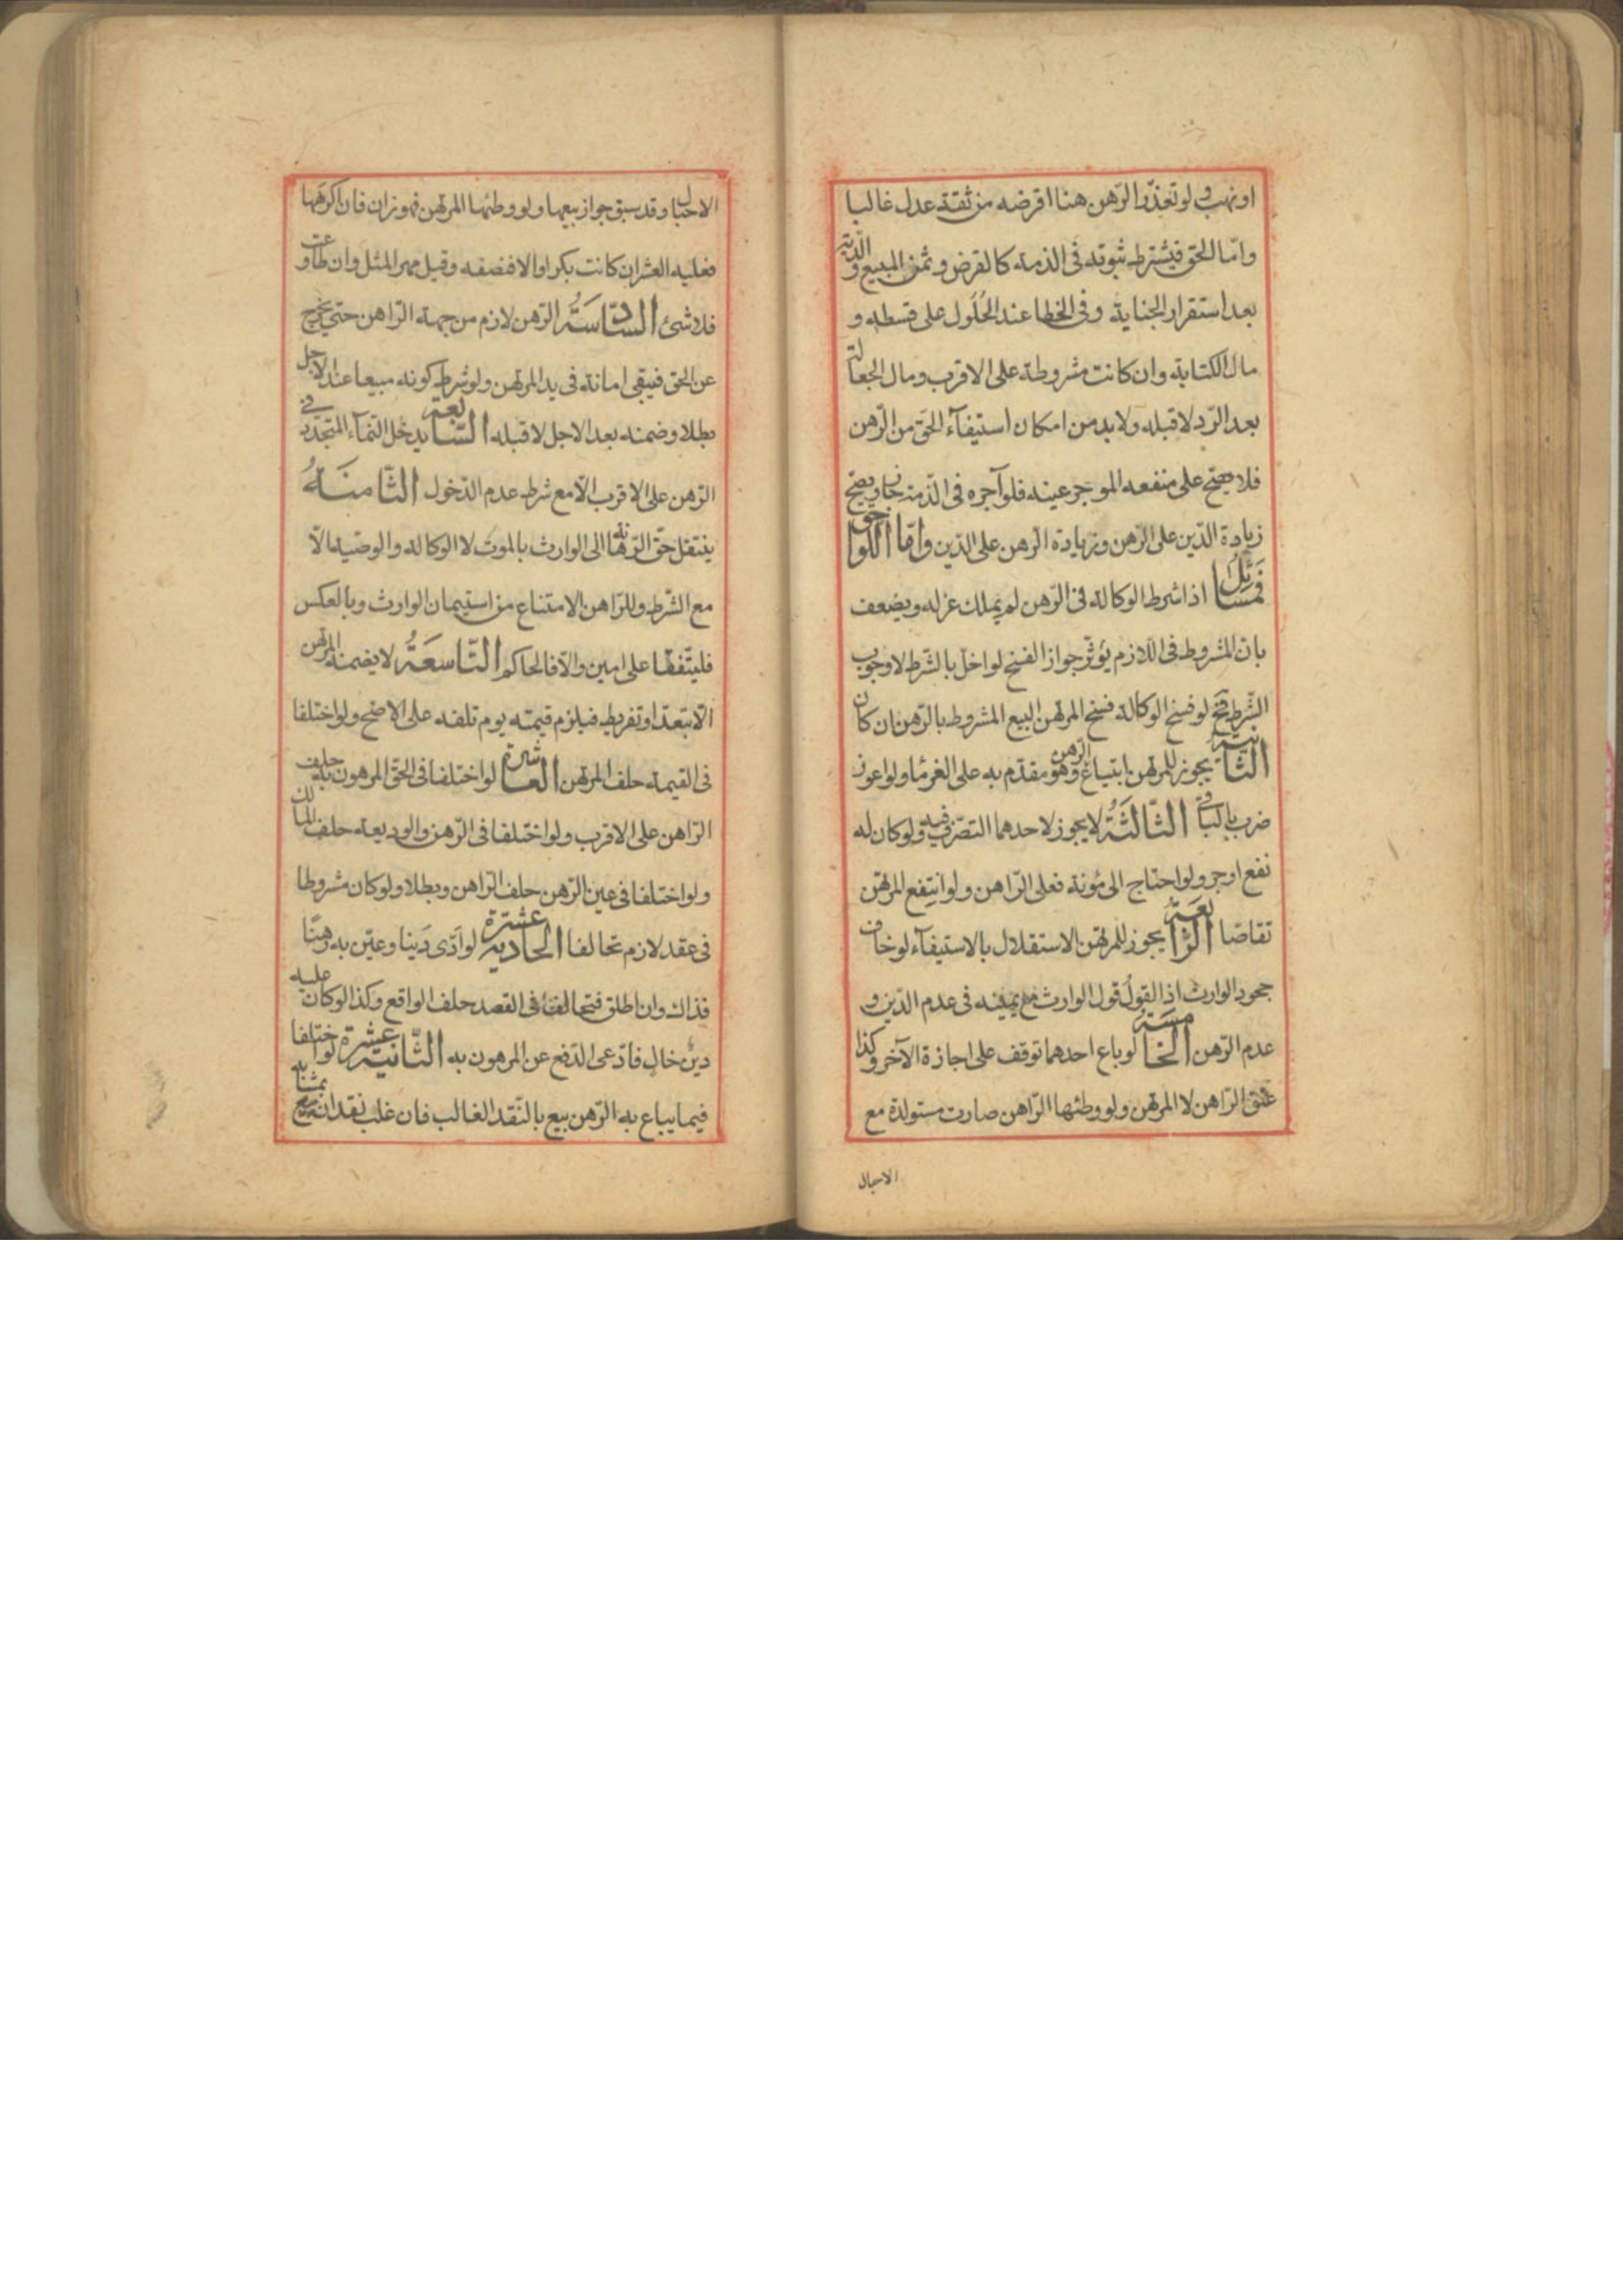 او نهب ولو تعذّر الرّهن هنا اقرضه من ثقة عدل غالبا
وامّا الحق فيشترط ثبوته فى الذمة كالقرض وثمن المبيع والدّية
بعد استقرار الجناية وفى الخطا عند الحُلُول على قسطه و
مال الكتابة وان كانت مشروطة على الاقرب ومال الجعالة
بعد الرّد لا قبله ولا بد من امكان استيفآء الحقّ من الرّهن
فلا يصحّ على منفعه الموجر عينه فلو آجره فى الذّمة جاز ويصحّ
زيادة الدّين على الرّهن وزيادة الرهن على الدّين وامّا اللواحق
فَمسَائِلُ اذا شرط الوكالة فى الرّهن لم يملك عزله ويضعف
بانّ المشروط فى اللازم يؤثّر جواز الفسخ لو اخلّ بالشّرط لا وجوب
الشّرط فح لو فسخ الوكالة فسخ المرتهن البيع المشروط بالرّهن ان كان
الثّانية يجوز للمرتهن ابتياع الرّهن وهو مقدّم به على الغرمٔا ولو اعوز
ضرب بالباقى الثّالثَةُ لا يجوز لاحدهما التصّرف فيه ولو كان له
نفع اوجر ولو احتاج الى مُونة فعلى الرّاهن ولو انتفع المرتهن
تقاصّا الرّابعَة يجوز للمرتهن الاستقلال بالاستيفآء لو خاف
جحود الوارث اذ القولُ قول الوارث مع يمينه فى عدم الدّين و
عدم الرّهن الخامسَة لو باع احدهما توقف على اجازة الآخر وكذا
عتق الرّاهن لا المرتهن ولو وطئها الرّاهن صارت مستولدة مع
الاحبال
الاحبال وقد سبق جواز بيعها ولو وطئها المرتهن فهو زان فان اكرهها
فعليه العشر ان كانت بكرا والا فنصفه وقيل مهر المثل وان طاوعت
فلا شئ السّادسَةُ الرّهن لازم من جهة الرّاهن حتى يخرج
عن الحق فيبقى امانة فى يد المرتهن ولو شرط كونه مبيعا عند الاجل
بطلا وضمنه بعد الاجل لا قبله السّابعة يدخل النّمآء المتجّدد فى
الرّهن على الاقرب الّا مع شرط عدم الدّخول الثّامنَةُ
ينتقل حقّ الرّهانة الى الوارث بالموت لا الوكالة والوصّية الّا
مع الشّرط وللرّاهن الامتناع من استيمان الوارث وبالعكس
فليتّفقا على امين والّا فالحاكم التّاسعَةُ لا يضمنه المرتهن
الّا بتعدّ او تفريط فيلزم قيمته يوم تلفه على الاصّح ولو اختلفا
فى القيمة حلف المرتهن العاشرة لو اختلفا فى الحقّ المرهون به حلف
الرّاهن على الاقرب ولو اختلفا فى الرّهن والوديعة حلف المالك
ولو اختلفا فى عين الرّهن حلف الرّاهن وبطلا ولو كان مشروطا
فى عقد لازم تحالفا الحادية عشرة لو ادّى دَينا وعيّن به رهنًا
فذاك وان اطلق فتخالفا فى القصد حلف الواقع وكذا لو كان عليه
دينٌ خالٍ فادّعى الدّفع عن المرهون به الثّانية عشرة لو اختلفا
فيما يباع به الرّهن بيع بالنّقد الغالب فان غلب نقدان بيع بمشابه